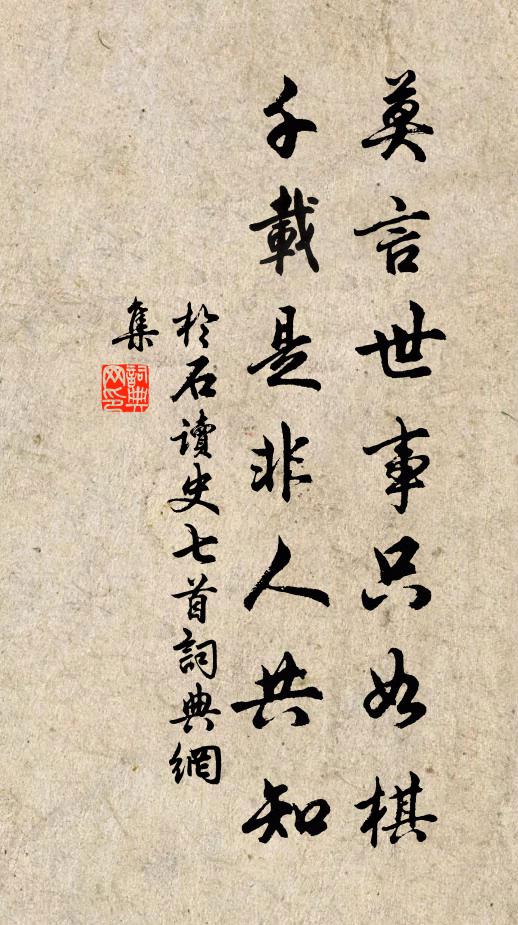 莫言世事只如棋
千載是非人共知
於石讀史七首詞典網
集
詞典網印